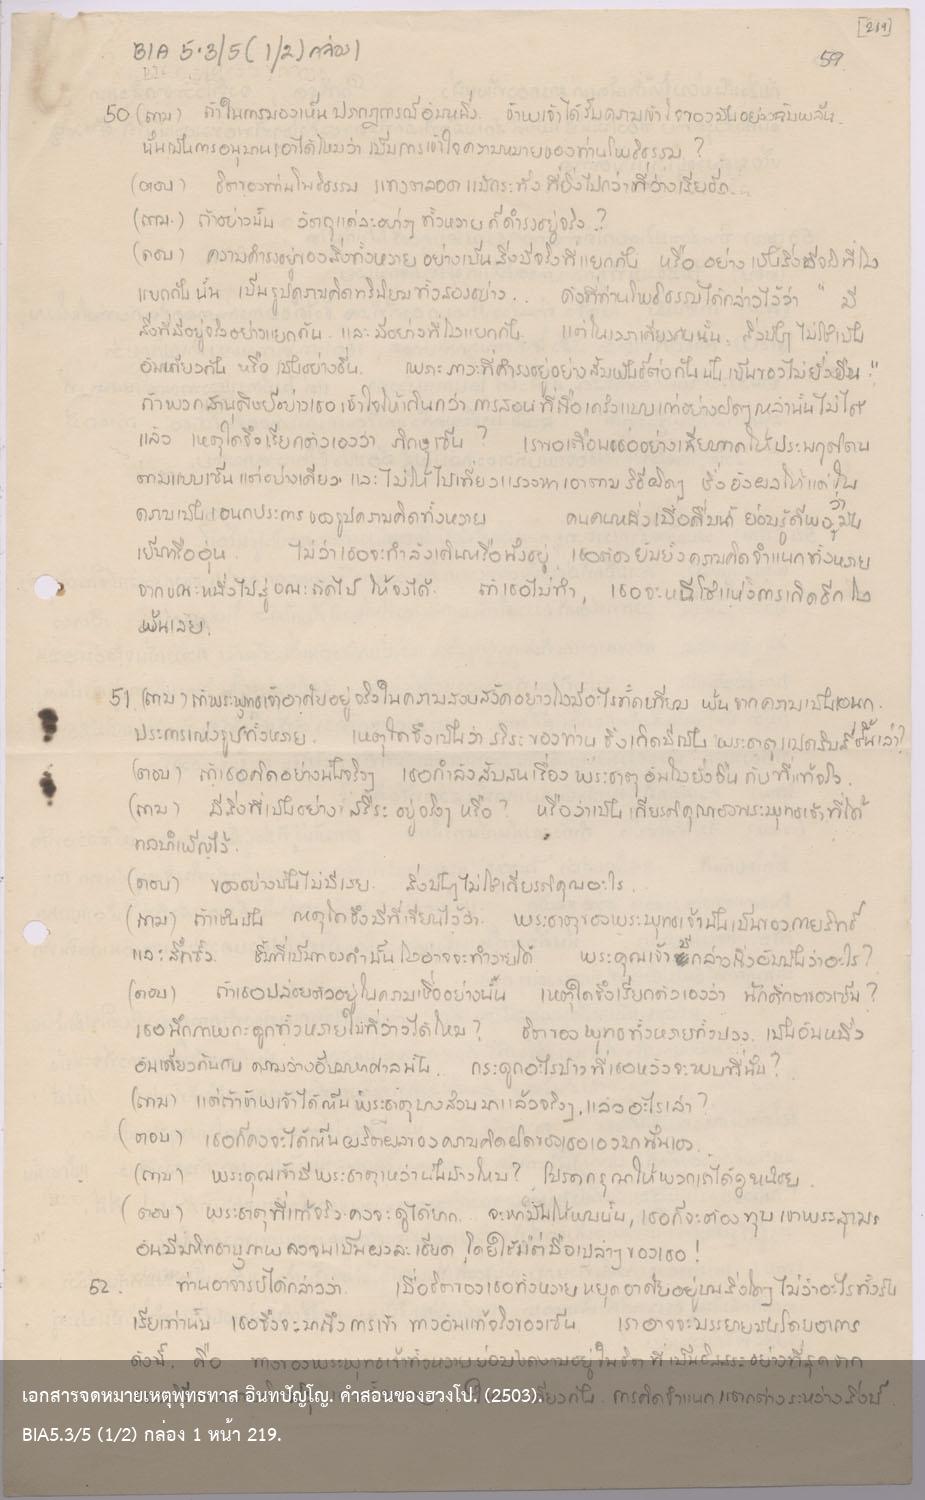 [219]
BIA 5.3/5 (1/2) กล่อง 1
59
50 (ถาม) ถ้าในการมองเห็นปรากฏการณ์อันหนึ่ง. ข้าพเจ้าได้รับความเข้าใจของมันอย่างฉับพลัน.
นั่นเป็นการอนุมานเอาได้ไหมว่า เป็นการเข้าใจความหมายของท่านโพธิธรรม ?
(ตอบ) จิตของท่านโพธิธรรม แทงตลอดแม้กระทั่งที่ยิ่งไปกว่าที่ว่างเสียอีก.
(ถาม.) ถ้าอย่างนั้น วัตถุแต่ละอย่างๆ ทั้งหลาย ก็ดำรงอยู่จริง.?
(ตอบ) ความดำรงอยู่ของสิ่งทั้งหลาย อย่างเป็นสิ่งมีจริงที่แยกกัน หรือ อย่างเป็นสิ่งมีจริงที่ไม่
แยกกันนั้น เป็นรูปความคิดทวินิยมทั้งสองอย่าง.. ดังที่ท่านโพธิธรรมได้กล่าวไว้ว่า " มี
สิ่งที่มีอยู่จริงอย่างแยกกัน. และมีอย่างที่ไม่แยกกัน. แต่ในเวลาเดียวกันนั้น. สิ่งนั้นๆ ไม่ใช่เป็น
อันเดียวกัน หรือ เป็นอย่างอื่น. เพราะภาวะที่ดำรงอยู่อย่างสัมพันธ์ต่อกันนั้น เป็นของไม่ยั่งยืน."
ถ้าพวกสานุศิษย์อย่างเธอ เข้าใจให้เกินกว่า การสอนที่ถือเคร่งแบบเก่าอย่างผิดๆเหล่านั้นไม่ได้
แล้ว เหตุใดจึงเรียกตัวเองว่า ภิกษุเซ็น ? เราขอเตือนเธออย่างเฉียบขาดให้ประพฤติตน
ตามแบบเซ็น แต่อย่างเดียว และไม่ให้ไปเที่ยวแสวงหาเอาตามวิธีผิดๆ ซึ่งมีผลให้แต่ใน
ความเป็นเอนกประการของรูปความคิดทั้งหลาย คนคนหนึ่งเมื่อดื่มน้ำ ย่อมรู้ดีพอว่ามัน
เย็นหรืออุ่น. ไม่ว่าเธอจะกำลังเดินหรือนั่งอยู่ เธอต้องยับยั้งความคิดจำแนกทั้งหลาย
จากขณะหนึ่งไปสู่ขณะถัดไป ให้จงได้. ถ้าเธอไม่ทำ, เธอจะหนีโซ่แห่งการเกิดอีกไม่
พ้นเลย.
51. (ถาม) ถ้าพระพุทธเจ้าอาศัยอยู่จริงในความสงบสงัดอย่างไม่มีอะไรทัดเทียม พ้นจากความเป็นเอนก
ประการแห่งรูปทั้งหลาย. เหตุใดจึงเป็นว่า สรีระของท่าน จึงเกิดมีเป็นพระธาตุแปดสิบสี่ชิ้นเล่า?
(ตอบ) ถ้าเธอคิดอย่างนั้นจริงๆ เธอกำลังสับสนเรื่อง พระธาตุ อันไม่ยั่งยืน กับที่แท้จริง.
(ถาม) มีสิ่งที่เป็นอย่าง สรีระ อยู่จริงๆ หรือ? หรือว่าเป็นเกียรติคุณของพระพุทธเจ้าที่ได้
ทรงบำเพ็ญไว้.
(ตอบ) ของอย่างนั้นไม่มีเลย. สิ่งนั้นๆ ไม่ใช่เกียรติคุณอะไร.
(ถาม) ถ้าเช่นนั้น เหตุใดจึงมีที่เขียนไว้ว่า. พระธาตุของพระพุทธเจ้านั้นเป็นของกายสิทธิ์
และลึกซึ้ง. ชิ้นที่เป็นทองคำนั้นไม่อาจจะทำลายได้ พระคุณเจ้ากล่าวถึงอันนั้นว่าอะไร?
(ตอบ) ถ้าเธอปล่อยตัวอยู่ในความเชื่ออย่างนั้น เหตุใดจึงเรียกตัวเองว่า นักศึกษาของเซ็น?
เธอนึกภาพกระดูกทั้งหลายในที่ว่างได้ไหม? จิตของพุทธทั้งหลายทั้งปวง. เป็นอันหนึ่ง
อันเดียวกันกับ ความว่างอันมหาศาลนั้น. กระดูกอะไรบ้างที่เธอหวังจะพบที่นั่น?
(ถาม) แต่ถ้าข้าพเจ้าได้เห็นพระธาตุบางส่วนมาแล้วจริงๆ, แล้วอะไรเล่า?
(ตอบ) เธอก็คงจะได้เห็นผลิตผลของความคิดผิดของเธอเองมากนั่นเอง.
(ถาม) พระคุณเจ้ามีพระธาตุเหล่านั้นบ้างไหม? โปรดกรุณาให้พวกเราได้ดูหน่อย.
(ตอบ) พระธาตุที่แท้จริงคงจะดูได้ยาก. จะหามันให้พบนั้น, เธอก็จะต้องทุบเขาพระสุเมรุ
อันมีมหิทธานุภาพ ลงจนเป็นผงละเอียด โดยใช้แต่มือเปล่าๆ ของเธอ!
52. ท่านอาจารย์ได้กล่าวว่า. เมื่อจิตของเธอทั้งหลาย หยุดอาศัยอยู่บนสิ่งใดๆ ไม่ว่าอะไรทั้งสิ้น
เสียเท่านั้น เธอจึงจะมาถึงการเข้า ทางอันแท้จริงของเซ็น เราอาจจะบรรยายมันโดยอาการ
ดังนี้. คือ ทางของพระพุทธเจ้าทั้งหลายย่อมงอกงามอยู่ในจิตที่เป็นอิสระอย่างที่สุดจาก
เดียวกัน. การคิดจำแนกแตกต่างระหว่างสิ่งมี
เอกสารจดหมายเหตุพุทธทาส อินทปัญโญ. คำสอนของฮวงโป. (2503).
BIA5.3/5 (1/2) กล่อง 1 หน้า 219.